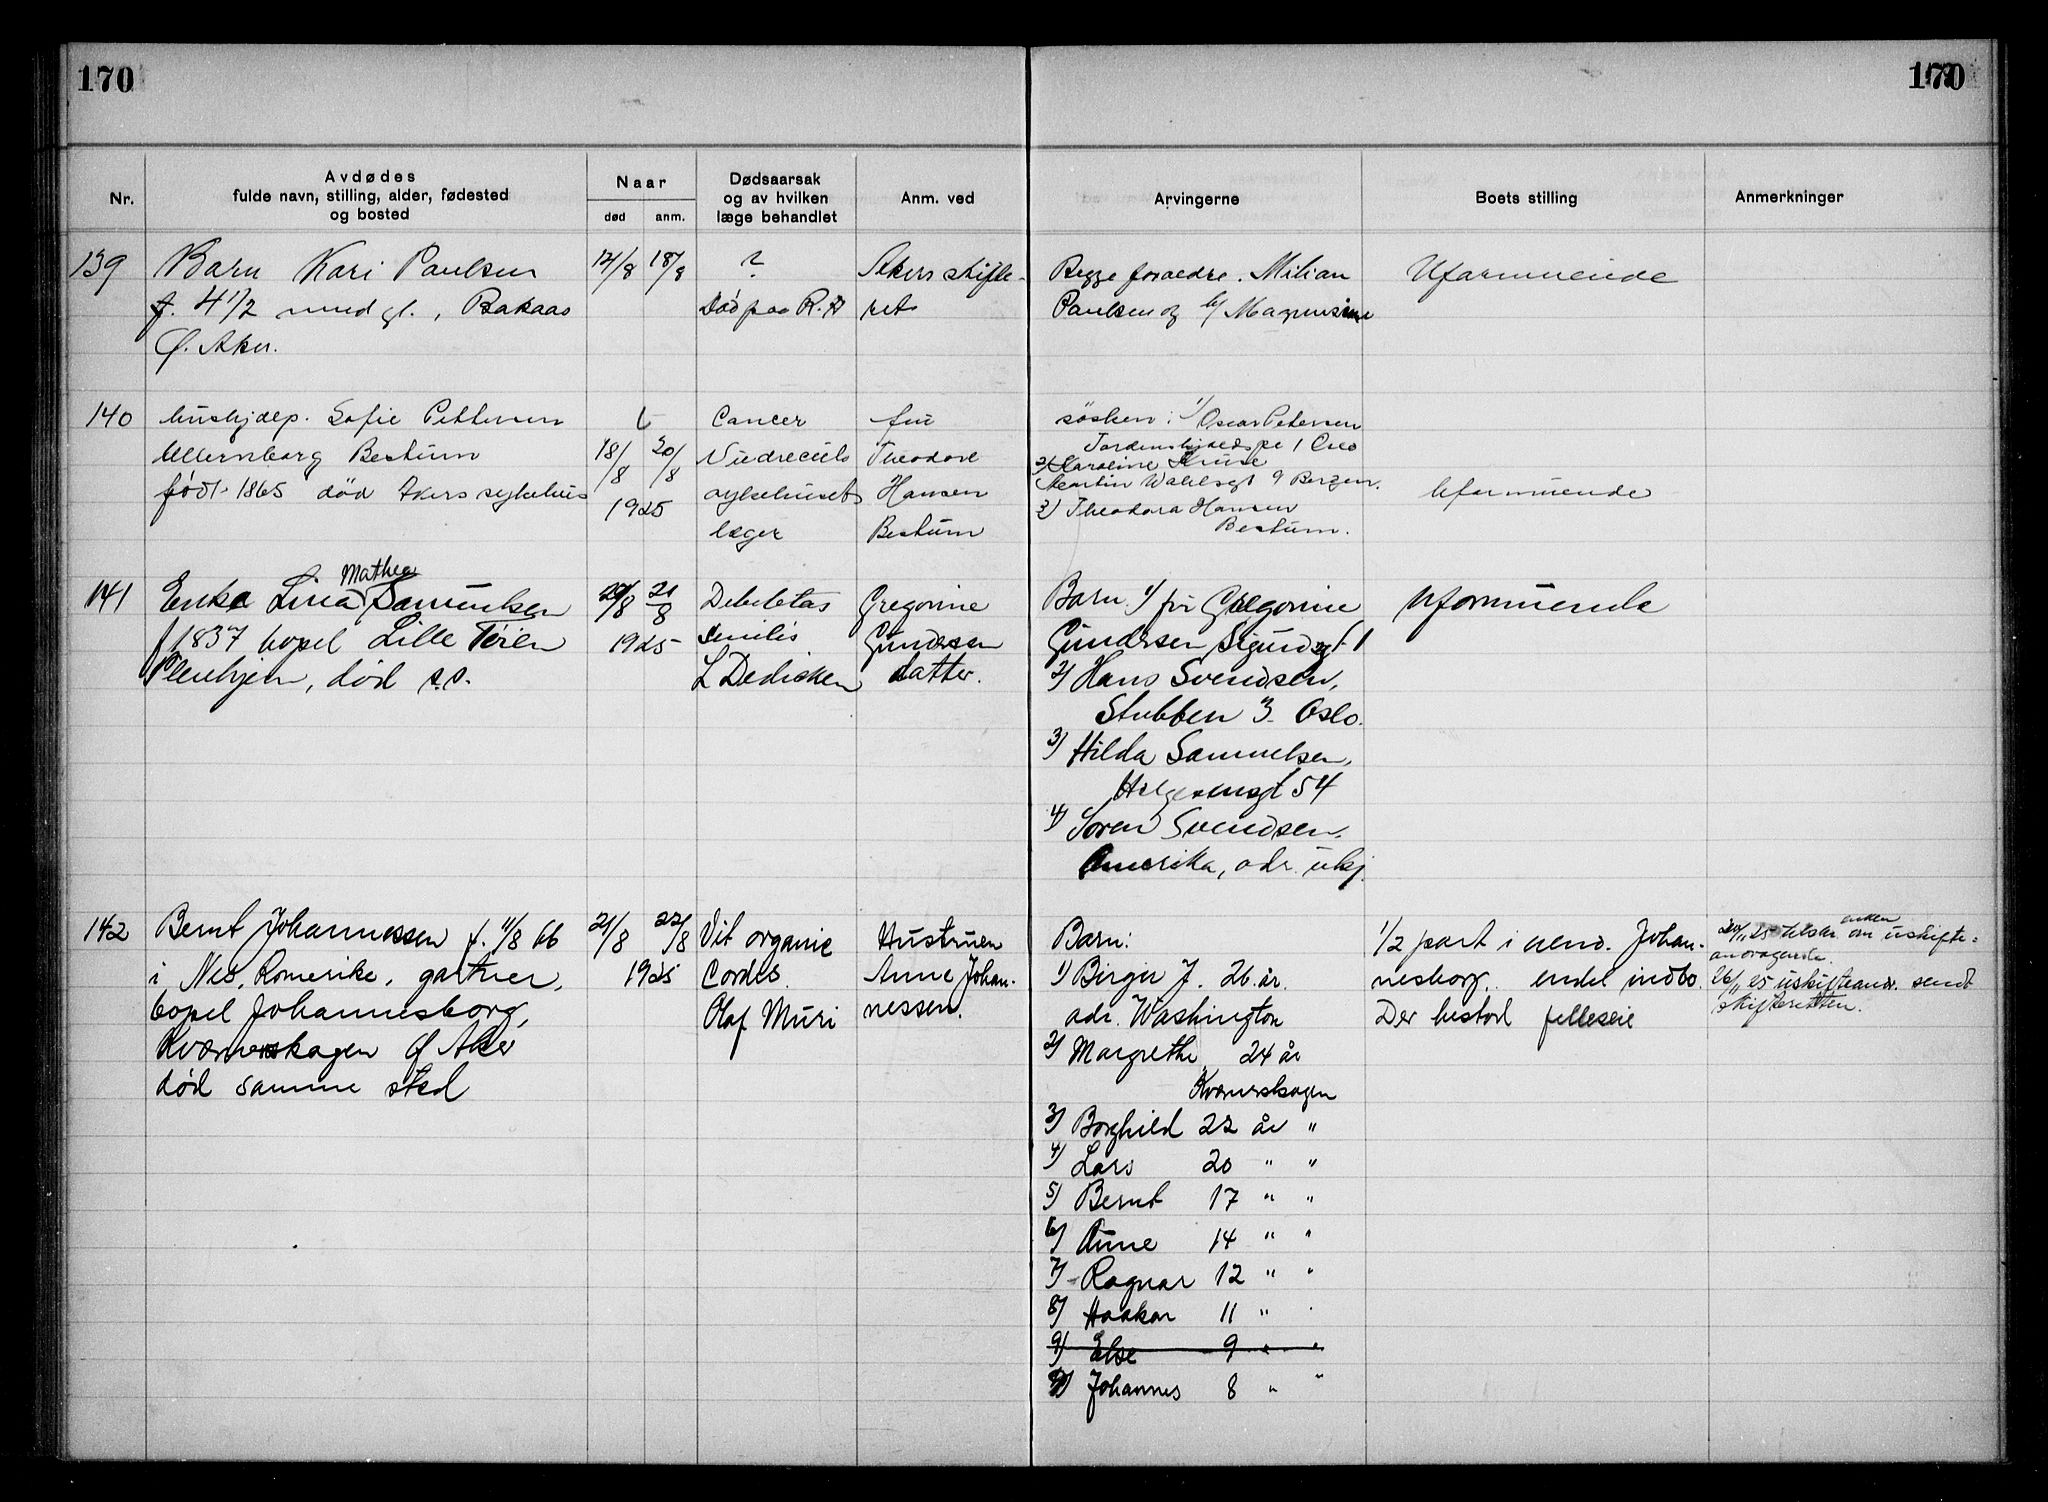 170
170
Nr.
Avdødes
fulde navn, stilling, alder, fødested
og bosted
Naar
død
anm.
Dødsaarsak
og av hvilken
læge behandlet
Anm. ved
Arvingerne
Boets stilling
Anmerkninger
139
Barn Kari Paulsen
f. 4 1/2 mnd gl., Bakaas
Ø. Aker.
12/8
18/8
?
Død paa R. H
Akers skifte-
ret
Begge foraedre. Milian
Paulsen og
Ufarmuende
140
Sofie Pettersen
Ullernborg Bestum
født 1865 død Akers sykehus
18/8
20/8
1925
Cancer
sykehusets
læger
fru
Theodora
Hansen
Bestum
søsken: 1/ Oscar Petersen
2/ Karoline Kruse
9 Bergen.
3/ Theodora Hansen
Bestum.
Uformuende
141
Enke Lina Mathea Samuelsen
f 1837 bopel Lille Tøien
Pleiehjem, død s.s.
20/8
21/8
1925
Debilitas
senilis
L Dedichen
Gregorine
Gundersen
datter.
Barn. 1/ fru Gregorine
Gundersen Sigurdsgt 1
2/ Hans Svendsen,
Stubben 3. Oslo.
3/ Hilda Samuelsen,
Helgesensgt 54
4/ Soren Svendsen.
Amerika, adr. ukj.
Uformuende
142
Bernt Johannessen f. 11/8 66
i Nes, Romerike, gartner,
bopel Johannesborg,
Kværnerskogen Ø Aker
død samme sted
21/8
22/8
1925
Vit organic
Cordis.
Olaf Muri
Hustruen
Anne Johan-
nessen.
Barn:
1) Birger J. 26. år.
adr. Washington
2) Margrethe, 24 år
Kværnerskogen
3) Borghild 22 år "
4) Lars 20 " "
5) Bernt 17 " "
6) Anne 14 " "
7) Ragnar 12 " "
8) Haakon 11 " "
9) Else 9 " "
9) Johannes 8 " "
1/2 part i eiend. Johan-
nesborg. endel indbo.
Der bestod felleseie
enken om uskifte-
andragende.
26/11 25 uskifteandr. sendt
skifteretten.